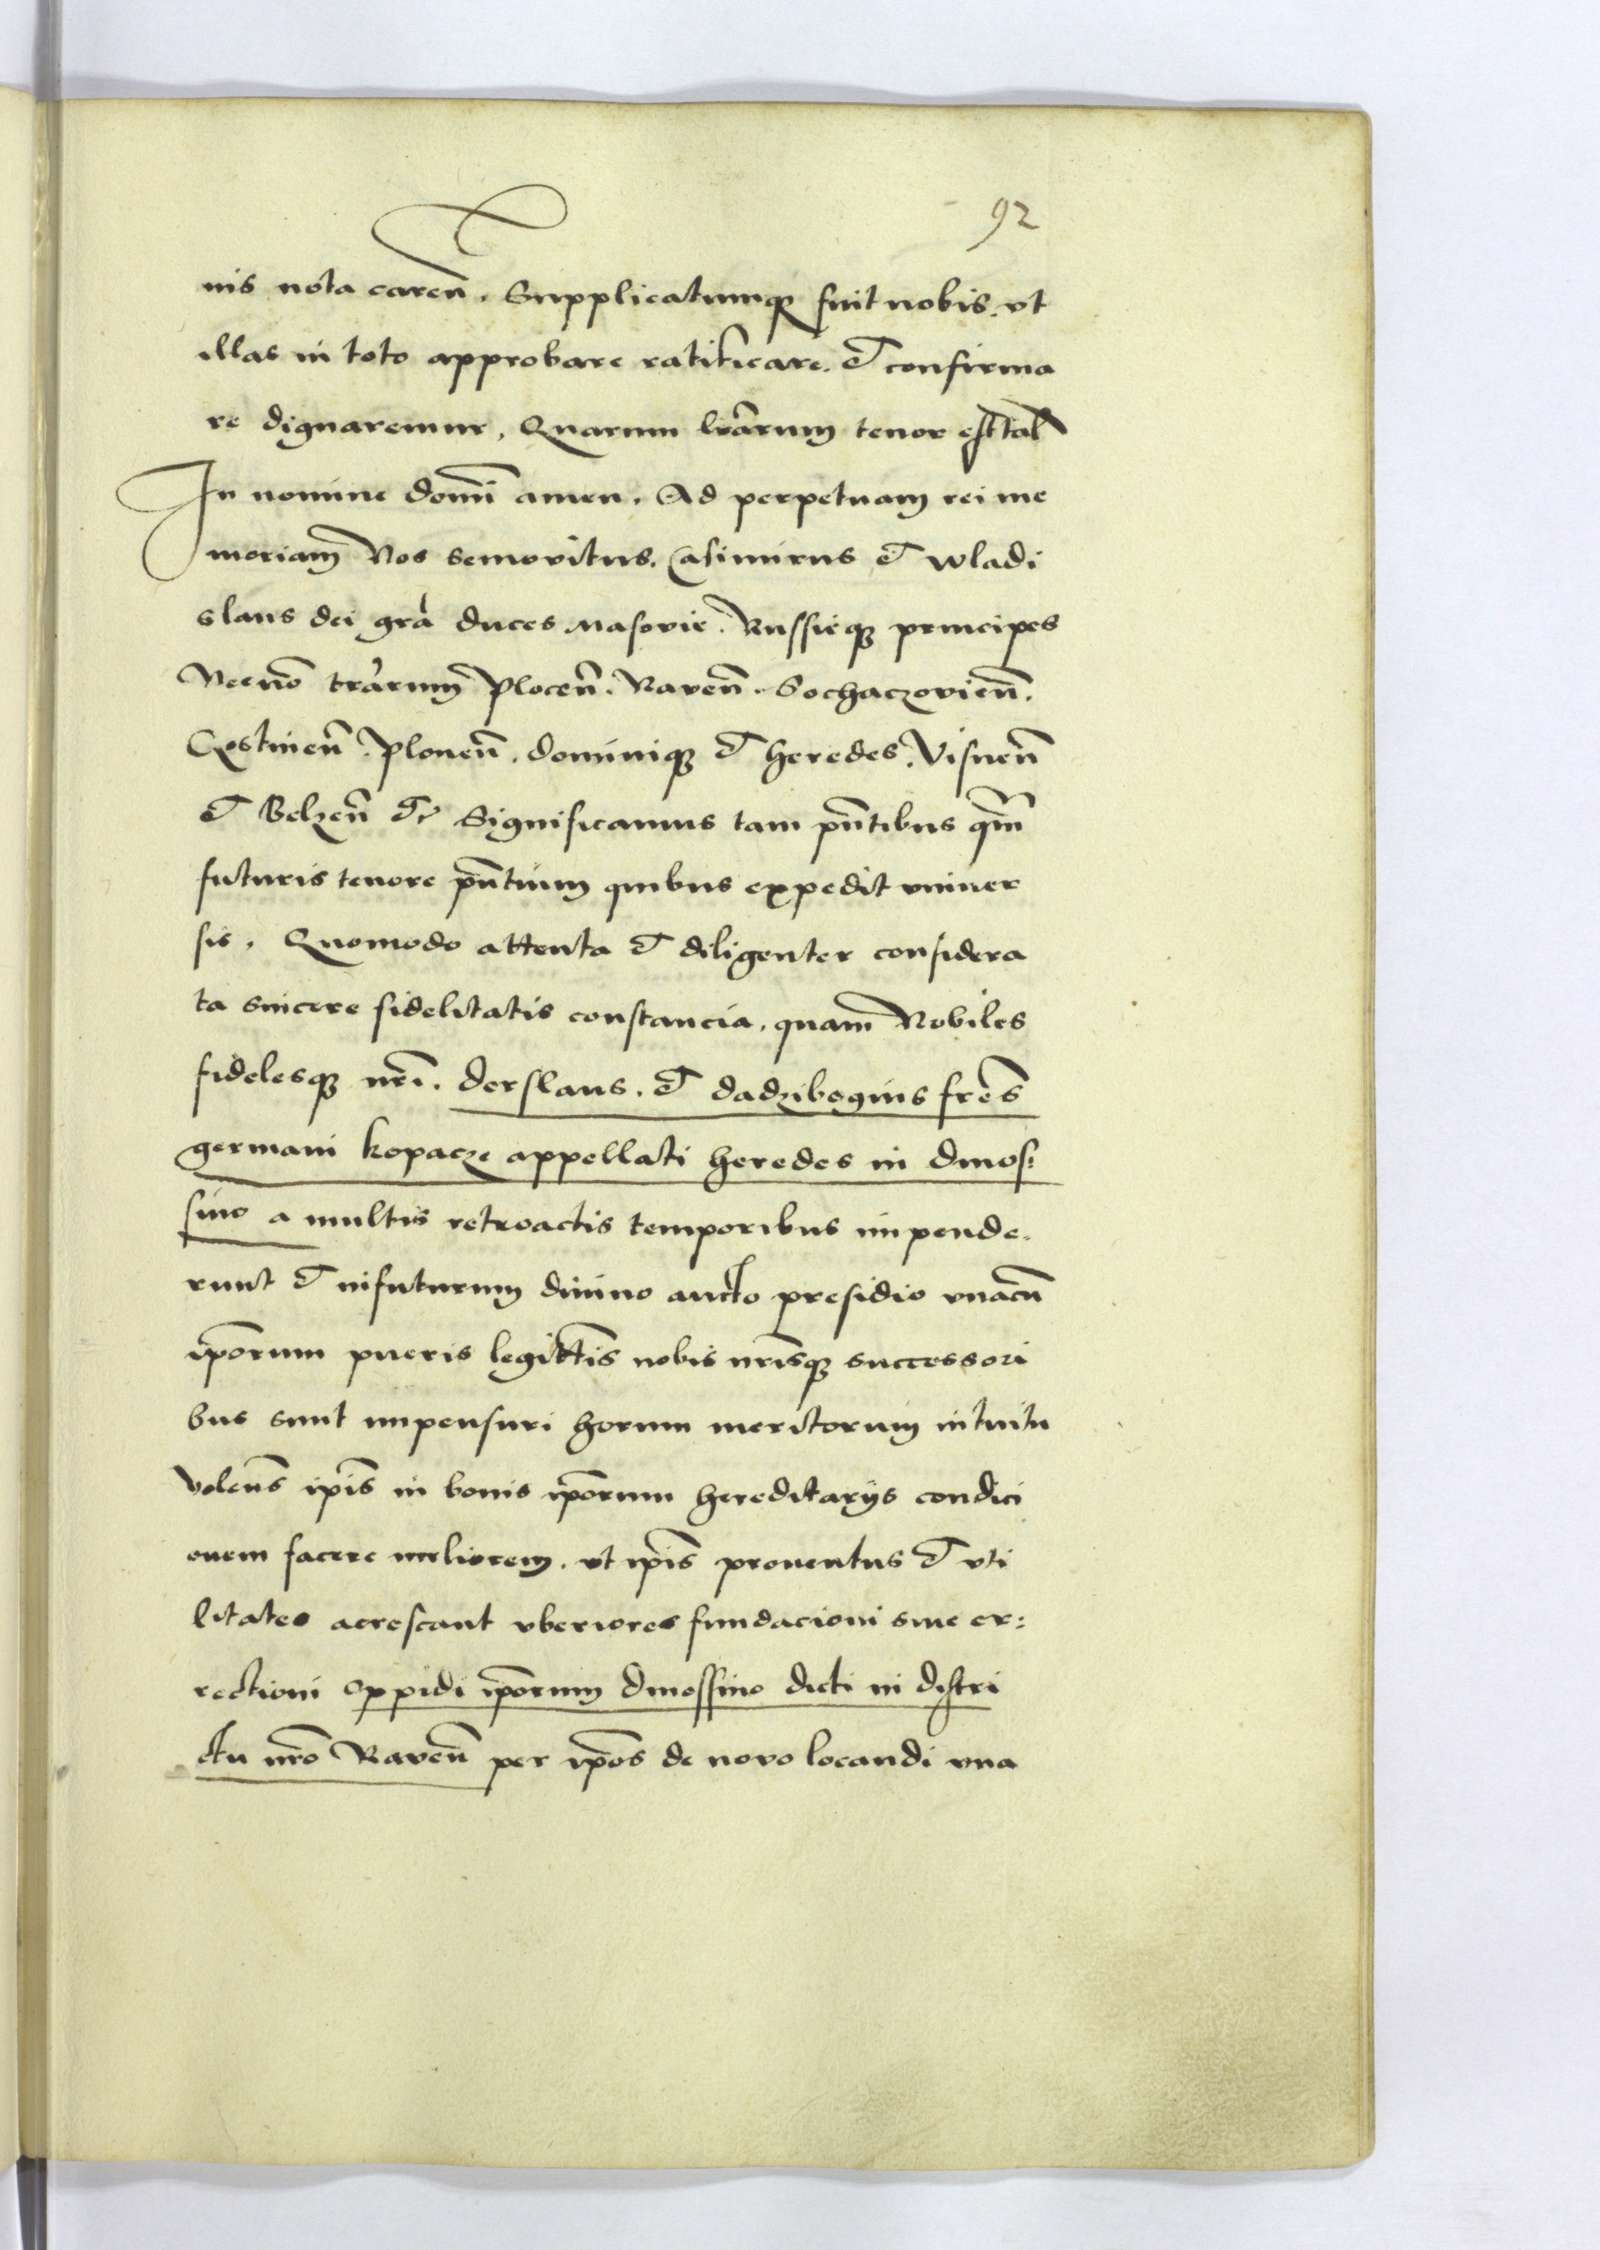 92
nis nota careñ. Supplicatumq3 fuit nobis. vt
illas in toto approbare ratificare. et confirma
re dignaremur, Quarum lrārum tenor est tal
In nomine domī amen. Ad perpetuam rei me
moriam Nos semovitus. Casimirus et wladi
slaus dei grā duces Masovie. Russieq3 principes
Necnō trārum Ploceñ. Raveñ. Sochaczovieñ.
Gostinieñ. Ploneñ. dominiq3 et heredes. Visneñ
et Belzeñ etc Significamus tam pn̄tibus qm̄
futuris tenore pn̄tium quibus expedit vniuer
sis. Quomodo attenta et diligenter considera
ta sincere fidelitatis constancia. quam Nobiles
fidelesq3 nrī. derslaus. et dadzibogius frēs
germani kopacze appellati heredes in dmos:
sino a multis retroactis temporibus impende.
runt et infuturum diuino aucto presidio vnacū
ipōrum pueris legittīs nobis nrīsq3 successori
bus sunt impensuri horum meritorum intuitu
volen̄s ip̄is in bonis ip̄orum hereditarijs condici
onem facere meliorem. vt ip̄is prouentus et vti
litates acrescant vberiores fundacioni siue er:
rectioni oppidi ip̄orum dmossino dicti in distri
ctu nrō Raveñ per ip̄os de novo locandi vna